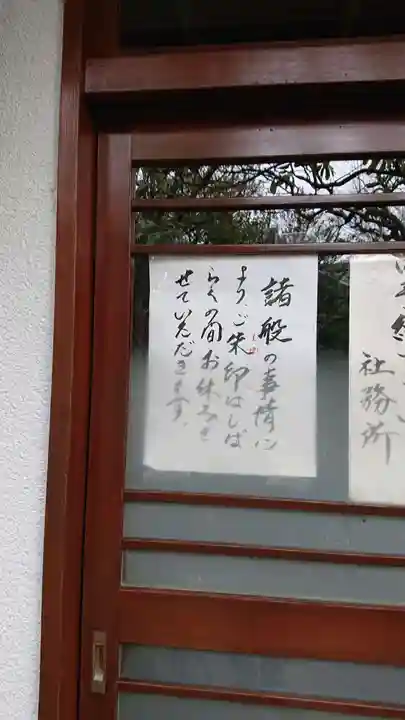 諸般の事情に
より、ご朱印はしば
らくの間お休みさ
せていただきます。
社務所